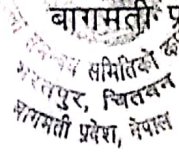 बागमती प्र
समितिको
भरतपुर, चितवन
बागमती प्रदेश, नेपाल